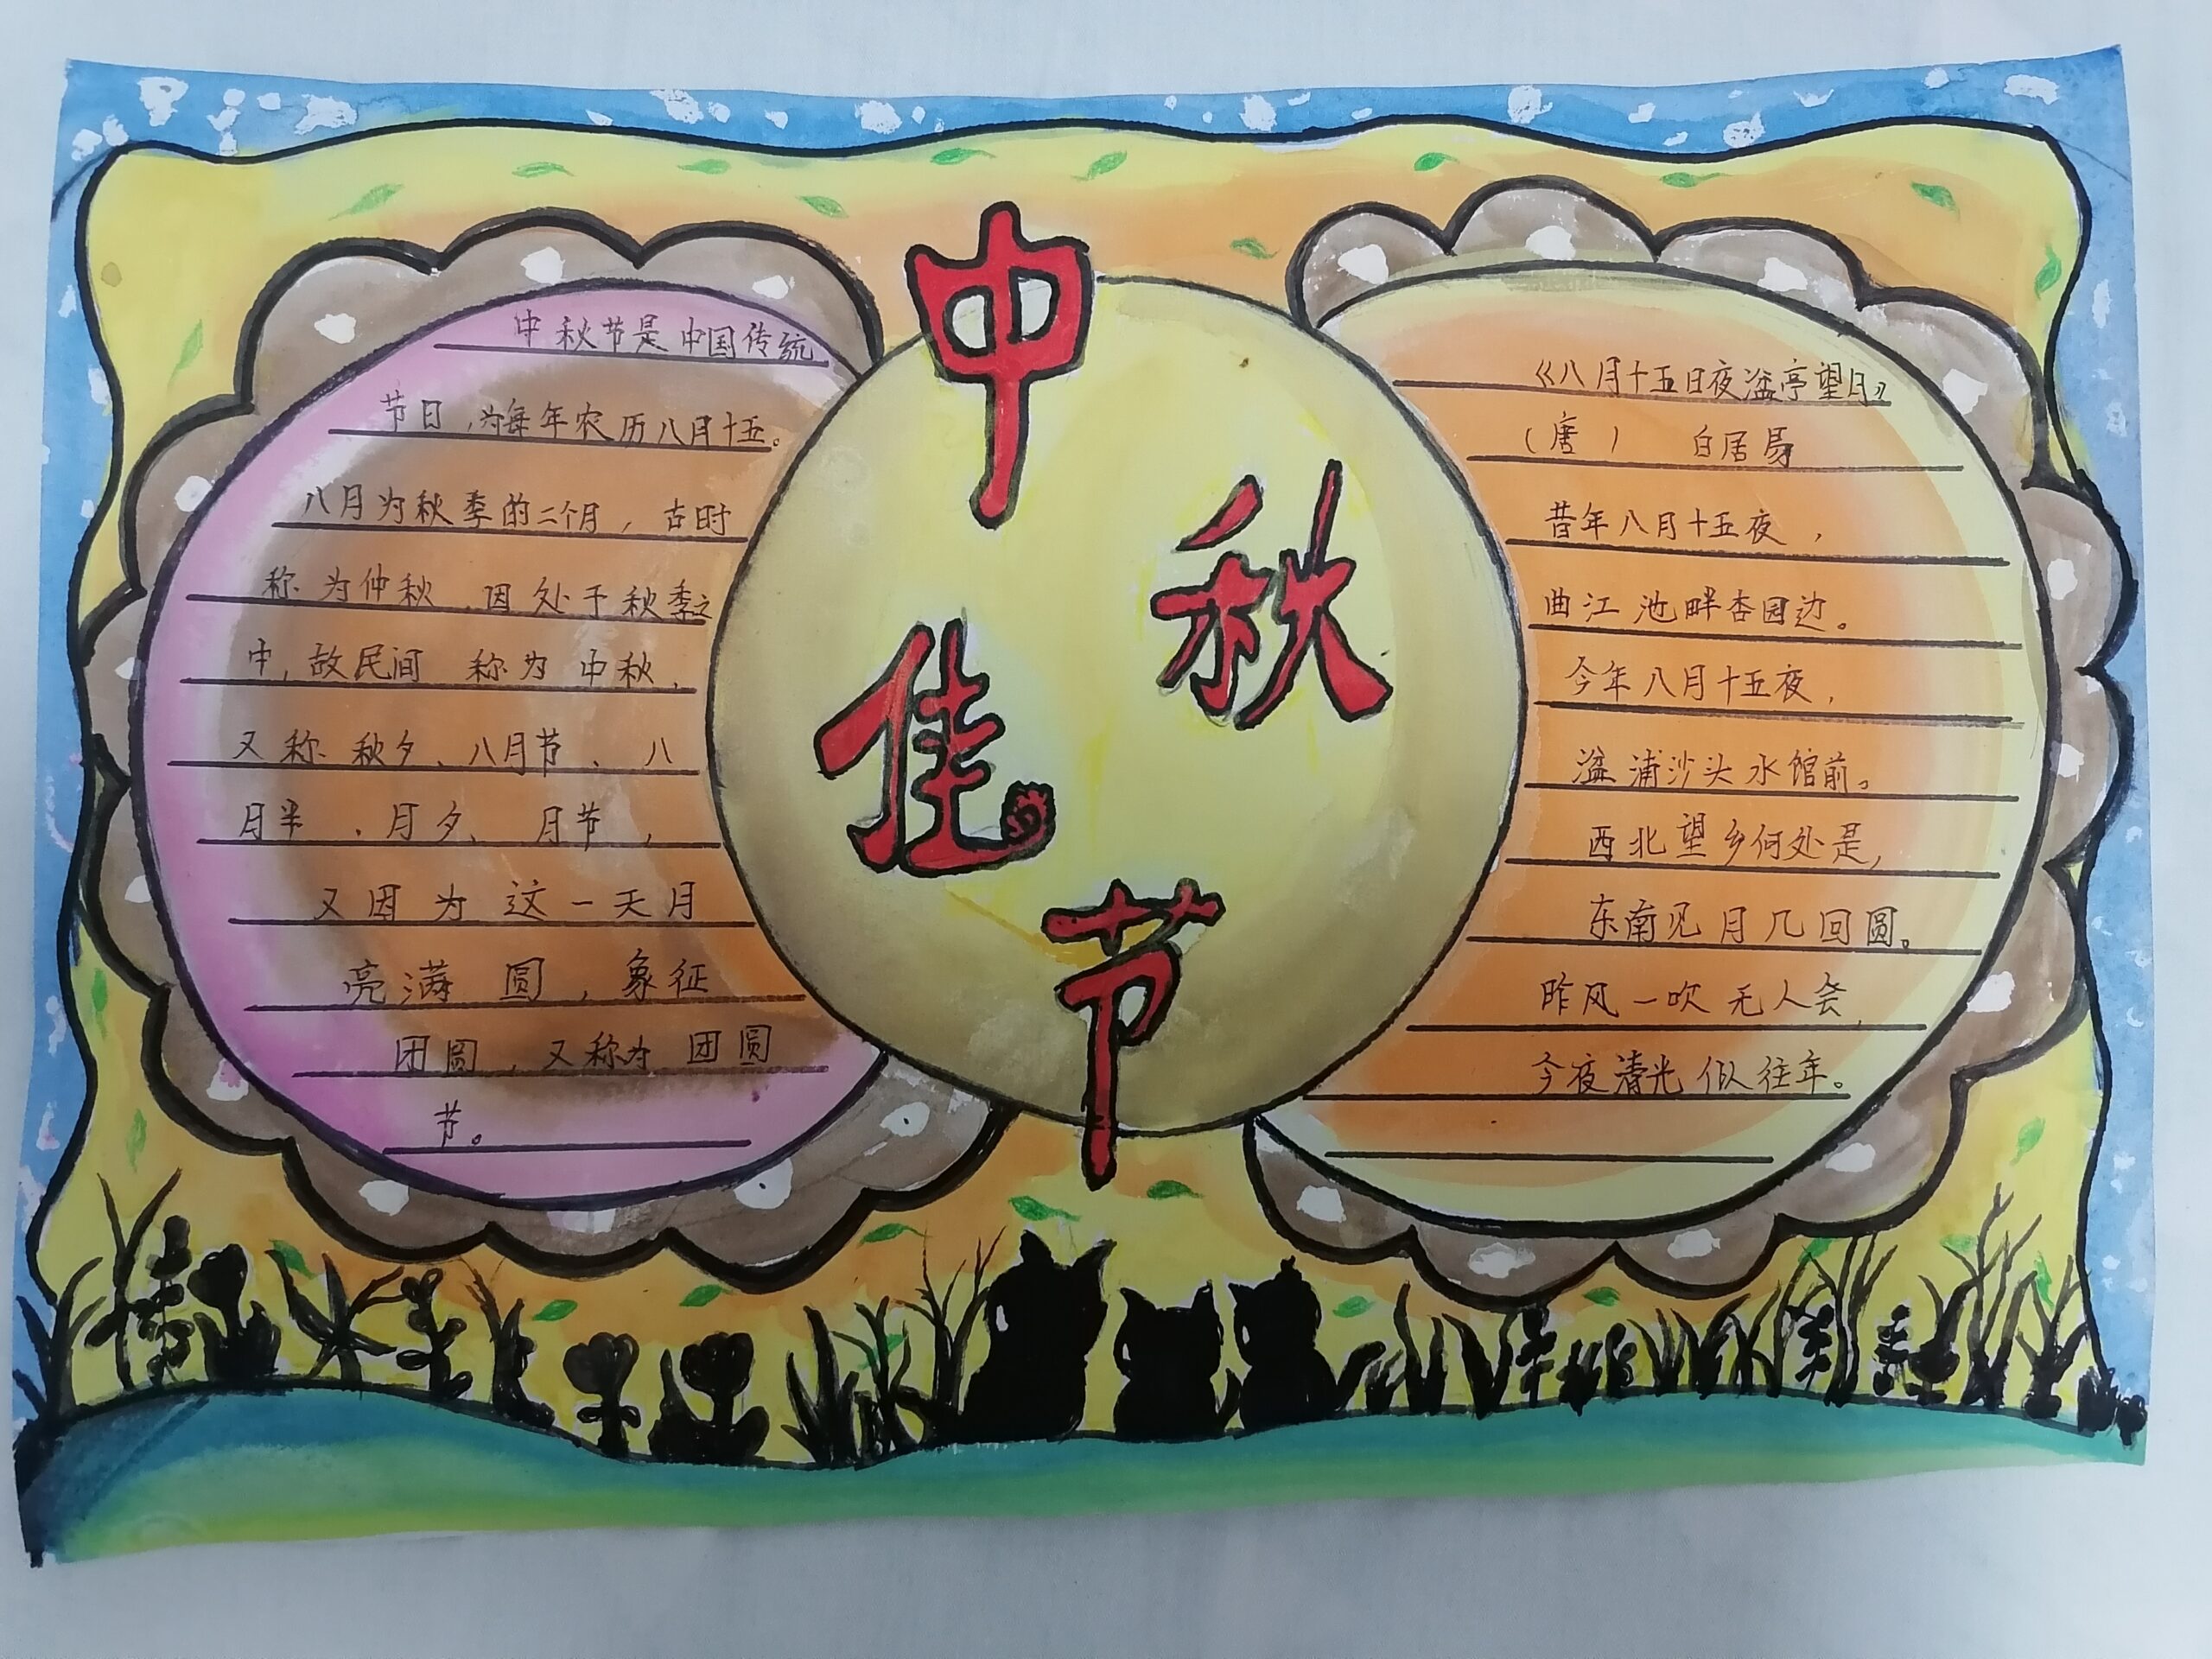 中秋佳节
中秋节是中国传统
节日,为每年农历八月十五。
八月为秋季的二个月,古时
称为仲秋,因处于秋季之
中,故民间称为中秋,
又称秋夕、八月节、八
月半、月夕、月节,
又因为这一天月
亮满圆,象征
团圆,又称为团圆
节。
《八月十五日夜湓亭望月》
(唐) 白居易
昔年八月十五夜,
曲江池畔杏园边。
今年八月十五夜,
湓浦沙头水馆前。
西北望乡何处是,
东南见月几回圆。
昨风一吹无人会,
今夜清光似往年。